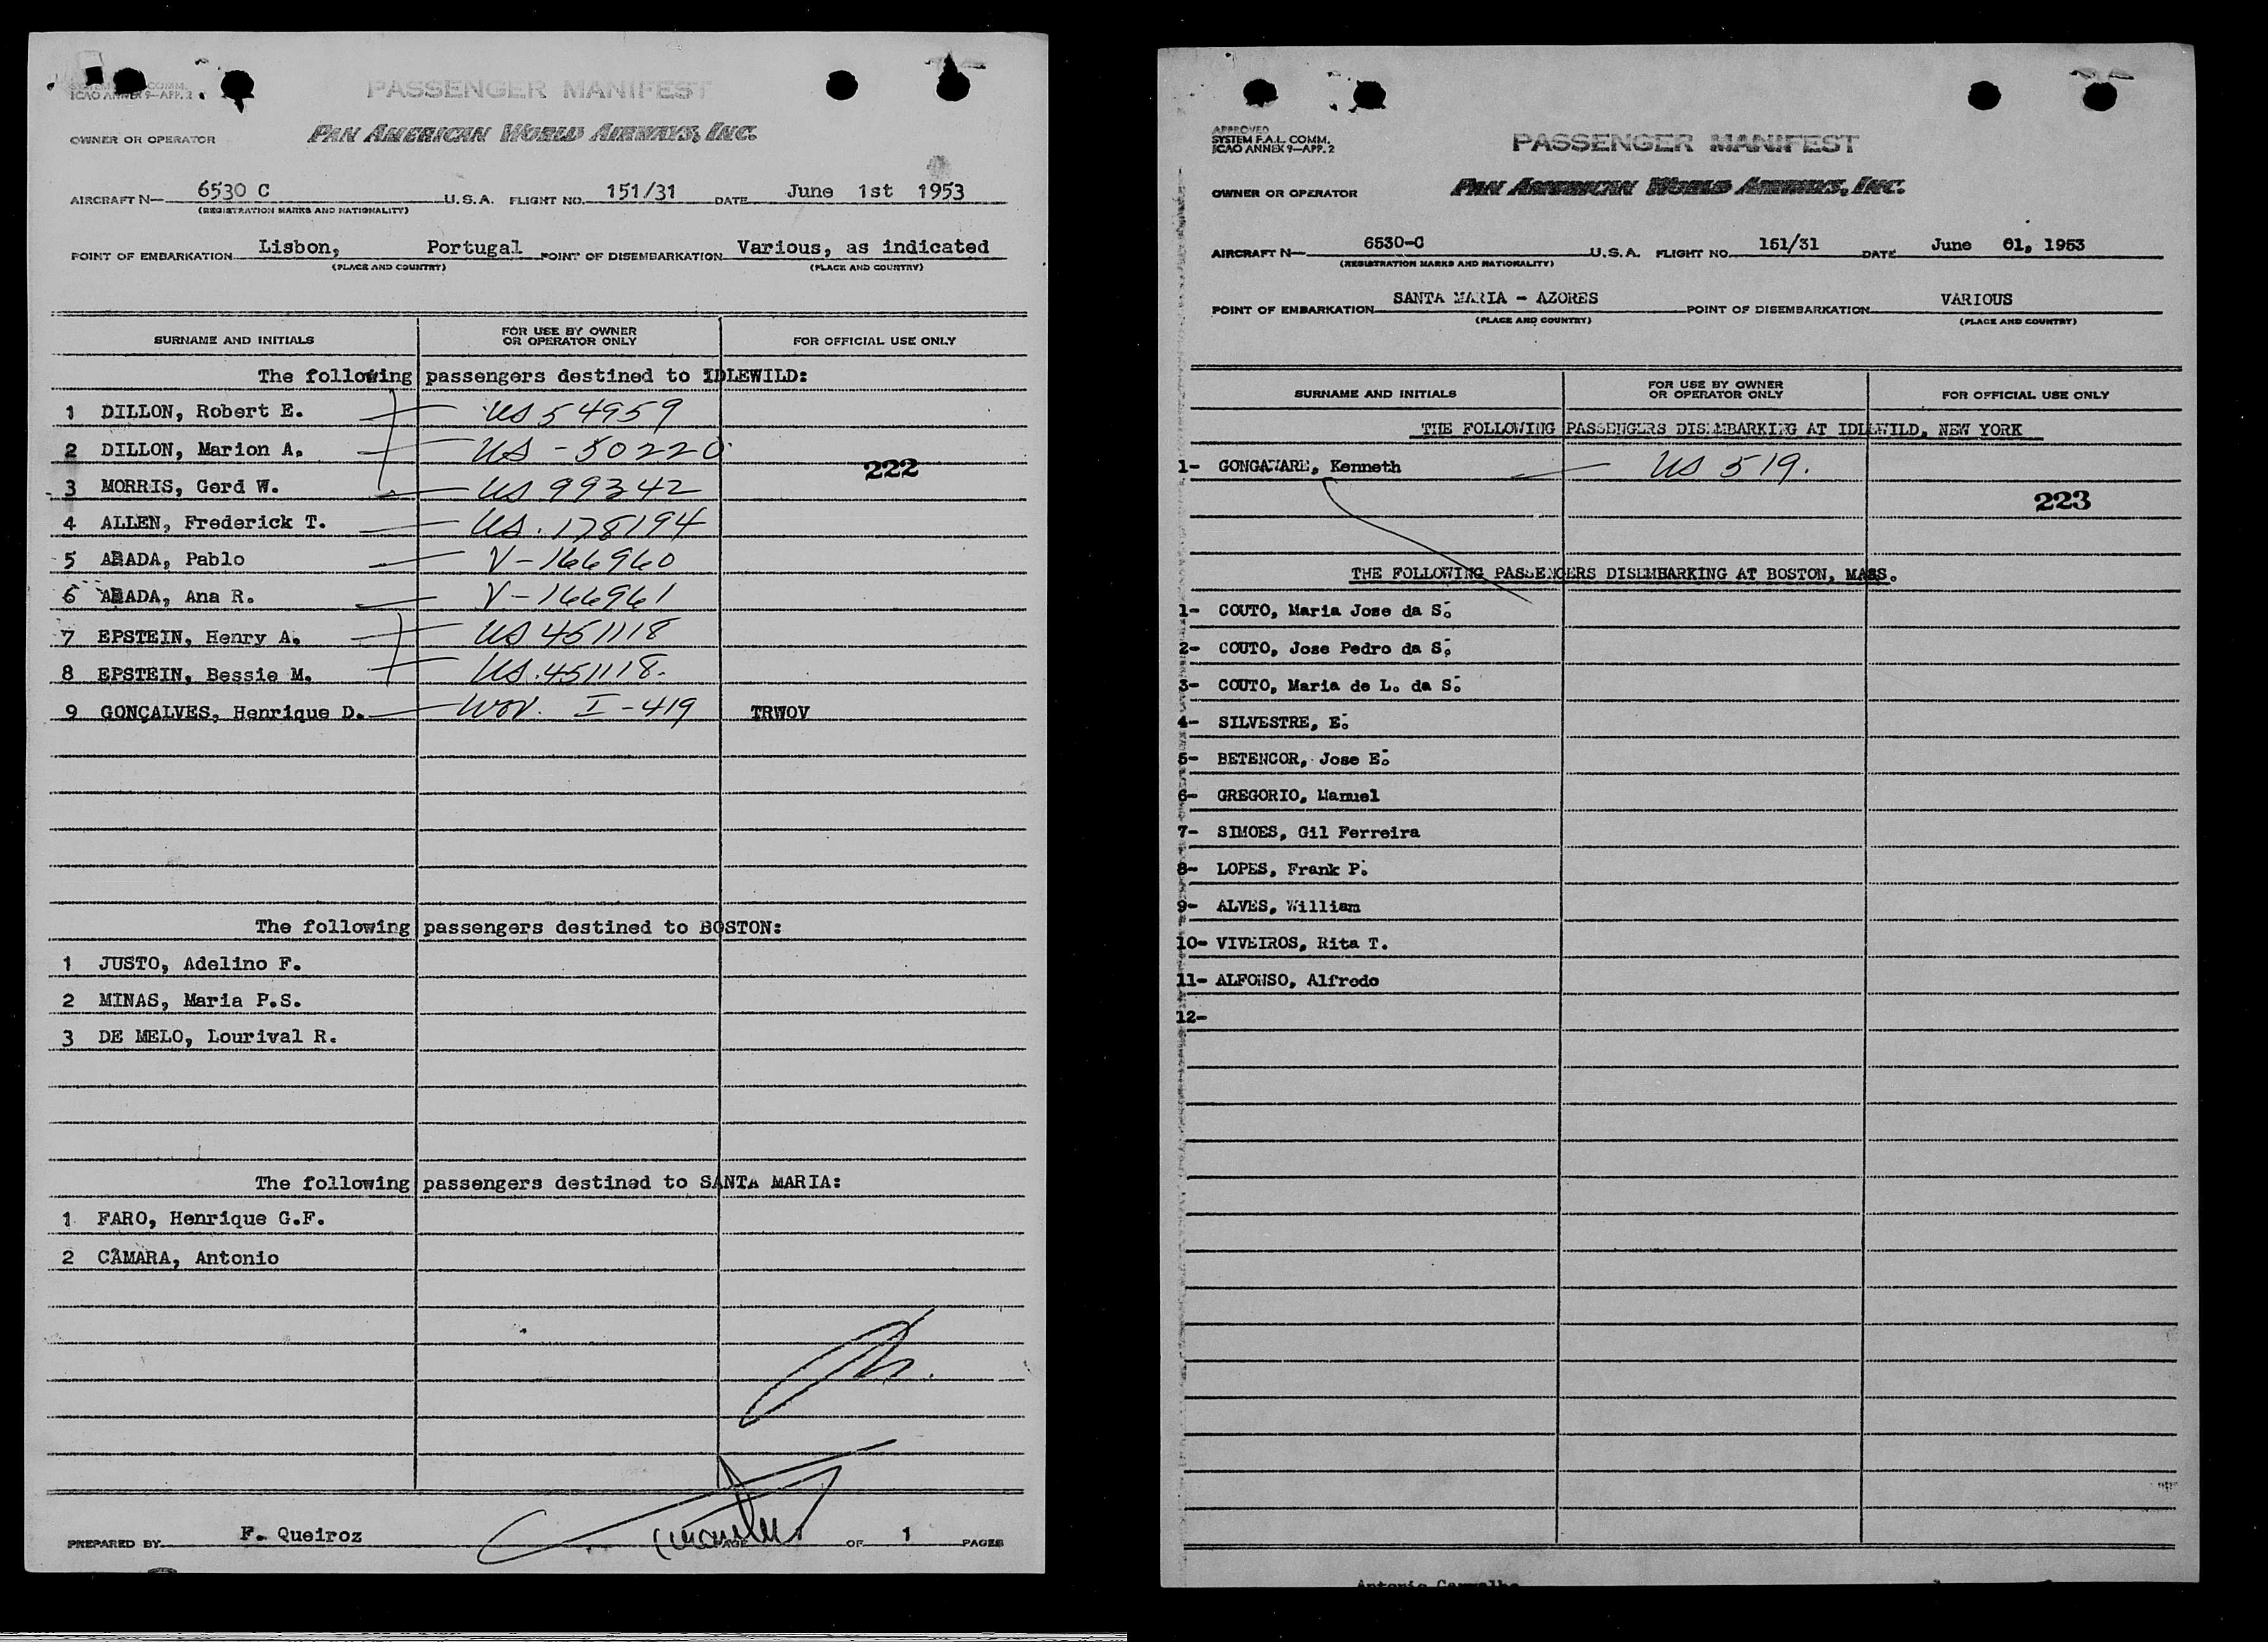 PASSENGER MANIFEST
ICAO ANNEX 9—APP. 2
OWNER OR OPERATOR PAN AMERICAN WORLD AIRWAYS, INC.
AIRCRAFT N— 6530 C U.S.A. FLIGHT NO. 151/31 DATE June 1st 1953
(REGISTRATION MARKS AND NATIONALITY)
POINT OF EMBARKATION Lisbon, Portugal POINT OF DISEMBARKATION Various, as indicated
(PLACE AND COUNTRY) (PLACE AND COUNTRY)
SURNAME AND INITIALS FOR USE BY OWNER OR OPERATOR ONLY FOR OFFICIAL USE ONLY
The following passengers destined to IDLEWILD:
1 DILLON, Robert E. US 54959
2 DILLON, Marion A. US - 50220
222
3 MORRIS, Gerd W. US 99342
4 ALLEN, Frederick T. US. 178194
5 ABADA, Pablo V-166960
6 ABADA, Ana R. V-166961
7 EPSTEIN, Henry A. US 451118
8 EPSTEIN, Bessie M. US. 451118.
9 GONÇALVES, Henrique D. WOV. I-419 TRWOV
The following passengers destined to BOSTON:
1 JUSTO, Adelino F.
2 MINAS, Maria P.S.
3 DE MELO, Lourival R.
The following passengers destined to SANTA MARIA:
1 FARO, Henrique G.F.
2 CÂMARA, Antonio
PREPARED BY F. Queiroz PAGE OF 1 PAGES
APPROVED
SYSTEM F.A.L. COMM.
ICAO ANNEX 9—APP. 2
PASSENGER MANIFEST
OWNER OR OPERATOR PAN AMERICAN WORLD AIRWAYS, INC.
AIRCRAFT N— 6530-C U.S.A. FLIGHT NO. 151/31 DATE June 01, 1953
(REGISTRATION MARKS AND NATIONALITY)
POINT OF EMBARKATION SANTA MARIA - AZORES POINT OF DISEMBARKATION VARIOUS
(PLACE AND COUNTRY) (PLACE AND COUNTRY)
SURNAME AND INITIALS FOR USE BY OWNER OR OPERATOR ONLY FOR OFFICIAL USE ONLY
THE FOLLOWING PASSENGERS DISEMBARKING AT IDLEWILD, NEW YORK
1- GONGAWARE, Kenneth US 519.
223
THE FOLLOWING PASSENGERS DISEMBARKING AT BOSTON, MASS.
1- COUTO, Maria Jose da S.
2- COUTO, Jose Pedro da S.
3- COUTO, Maria de L. da S.
4- SILVESTRE, E.
5- BETENCOR, Jose E.
6- GREGORIO, Manuel
7- SIMOES, Gil Ferreira
8- LOPES, Frank P.
9- ALVES, William
10- VIVEIROS, Rita T.
11- ALFONSO, Alfredo
12-
Antonio Carvalho